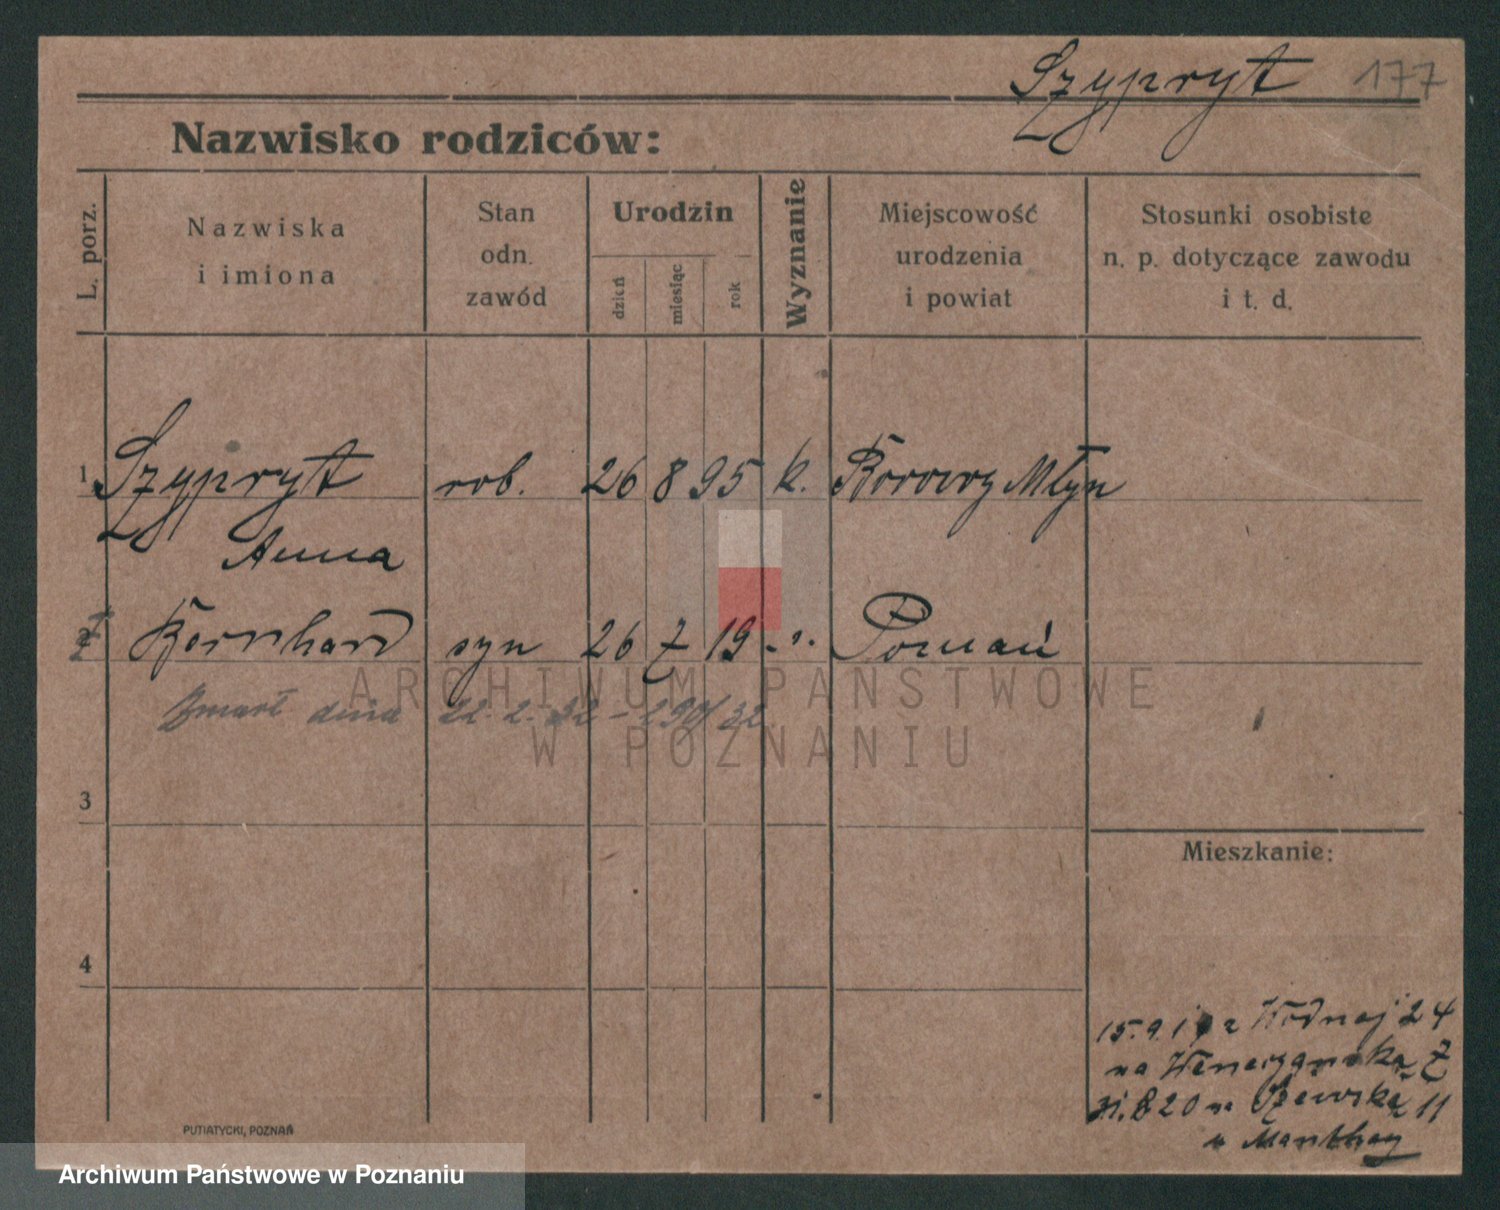 Szypryt 177
Nazwisko rodziców:
L. porz.
Nazwiska
i imiona
Stan
odn.
zawód
Urodzin
dzień
miesiąc
rok
Wyznanie
Miejscowość
urodzenia
i powiat
Stosunki osobiste
n. p. dotyczące zawodu
i t. d.
1 Szypryt rob. 26 8 95 k. Borowy Młyn
Anna
2 Bernhard syn 26 7 19 Poznań
Zmarł dnia 22. 2. 32 -
3
Mieszkanie:
4
15.9.19 z Wodnej 24
na Weneczjańska 7
31.8 20 na Szewska 11
u Manthey
PUTIATYCKI, POZNAŃ
ARCHIWUM PAŃSTWOWE
W POZNANIU
Archiwum Państwowe w Poznaniu